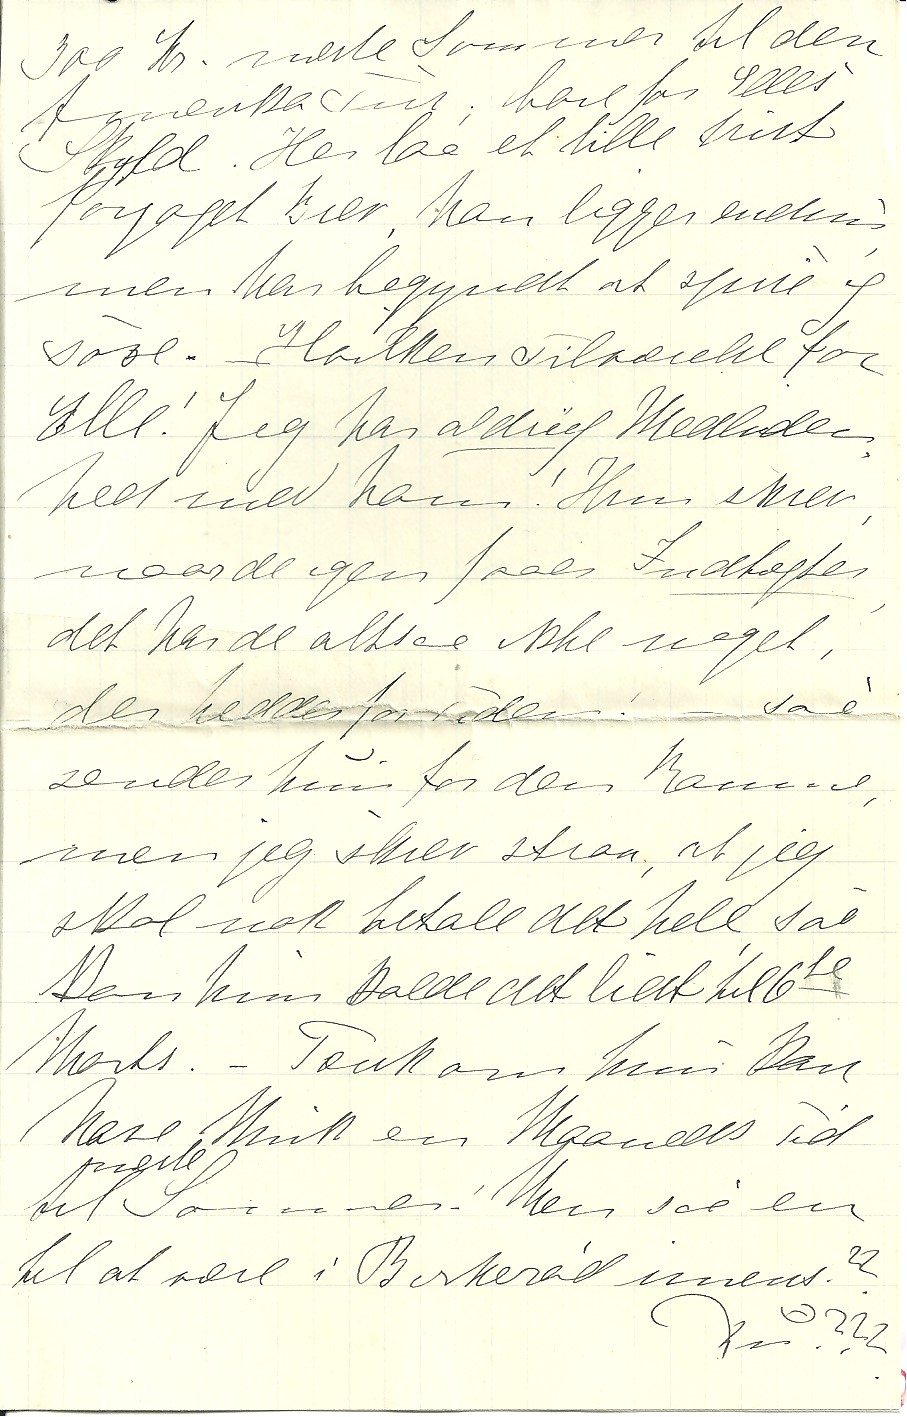 300 Kr. næste Sommer til den
Amerika Tur, bare for Elles
Skyld. Her laa et lille trist
forjaget Brev, han ligger endnu,
men har begyndt at spise og
sove. – Hvilken Tilværelse for
Elle! Jeg har aldrig Medliden-
hed med ham! Hun skrev,
naar de igen faaer Indtægter,
det har de altsaa ikke noget,
der hedder for Tiden! – saa
sender hun for den Ramme,
men jeg skrev strax, at jeg
skal nok betale det hele, saa
kan hun kalde det lidt til 6te
Marts. – Tænk om hun kan
have Mink en Maaneds Tid
næste
til Sommer! Men saa en
til at være i Birkerød imens.??
???